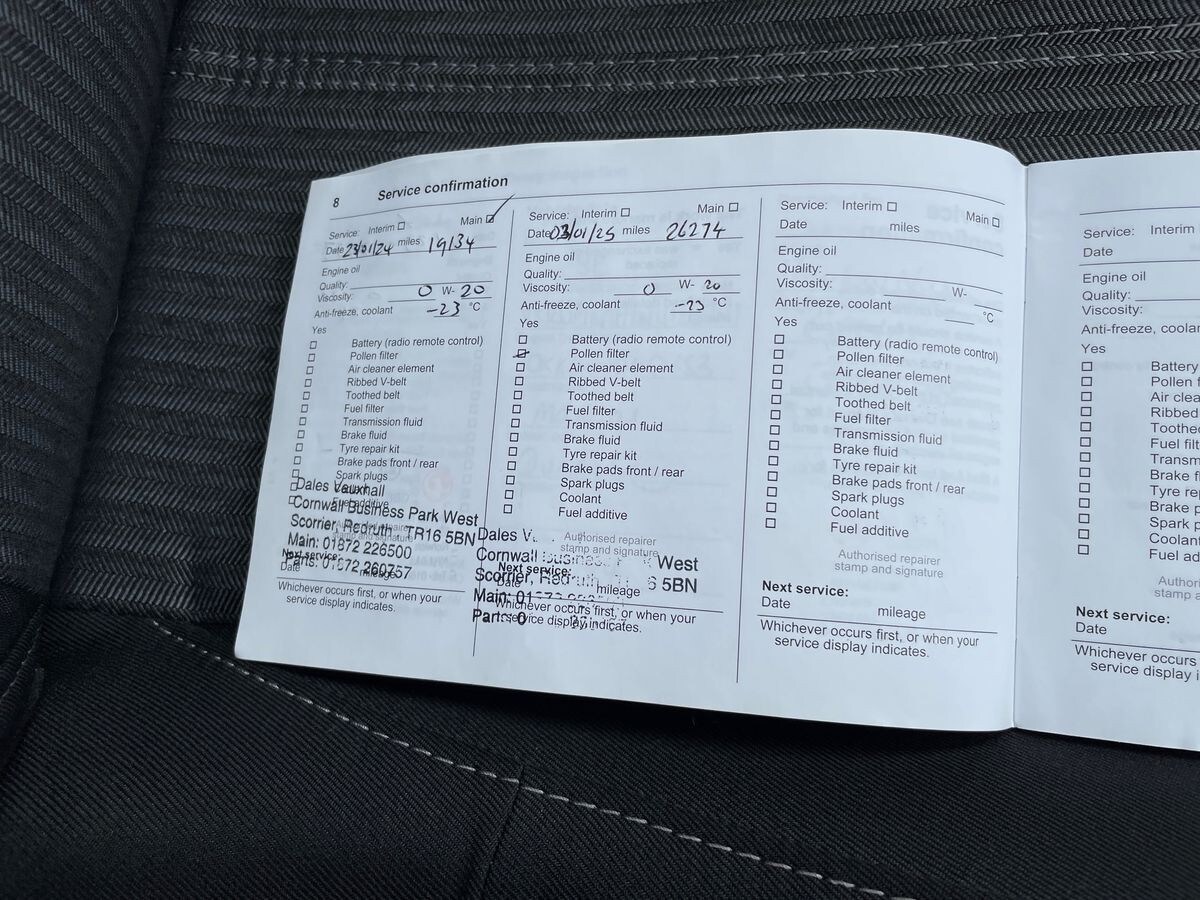 8 Service confirmation
Service: Interim ☐ Main ☑
Date 23/01/24 miles 19134
Engine oil
Quality:
Viscosity: 0 W- 20
Anti-freeze, coolant -23 °C
Yes
☐ Battery (radio remote control)
☐ Pollen filter
☐ Air cleaner element
☐ Ribbed V-belt
☐ Toothed belt
☐ Fuel filter
☐ Transmission fluid
☐ Brake fluid
☐ Tyre repair kit
☐ Brake pads front / rear
☐ Spark plugs
Fuel additive
Dales Vauxhall
Cornwall Business Park West
Scorrier, Redruth TR16 5BN
Main: 01872 226500
Parts: 01872 260757
Authorised repairer
stamp and signature
Next service:
Date mileage
Whichever occurs first, or when your
service display indicates.
Service: Interim ☐ Main ☐
Date 03/01/25 miles 26274
Engine oil
Quality:
Viscosity: 0 W- 20
Anti-freeze, coolant -23 °C
Yes
☐ Battery (radio remote control)
☑ Pollen filter
☐ Air cleaner element
☐ Ribbed V-belt
☐ Toothed belt
☐ Fuel filter
☐ Transmission fluid
☐ Brake fluid
☐ Tyre repair kit
☐ Brake pads front / rear
☐ Spark plugs
☐ Coolant
☐ Fuel additive
Dales V
Authorised repairer
stamp and signature
Cornwall Business West
Scorrier, 6 5BN
Main:
Next service:
Date mileage
Whichever occurs first, or when your
service display indicates.
Service: Interim ☐ Main ☐
Date miles
Engine oil
Quality:
Viscosity: W-
Anti-freeze, coolant °C
Yes
☐ Battery (radio remote control)
☐ Pollen filter
☐ Air cleaner element
☐ Ribbed V-belt
☐ Toothed belt
☐ Fuel filter
☐ Transmission fluid
☐ Brake fluid
☐ Tyre repair kit
☐ Brake pads front / rear
☐ Spark plugs
☐ Coolant
☐ Fuel additive
Authorised repairer
stamp and signature
Next service:
Date mileage
Whichever occurs first, or when your
service display indicates.
Service: Interim
Date
Engine oil
Quality:
Viscosity:
Anti-freeze, coolan
Yes
☐ Battery
☐ Pollen f
☐ Air clea
☐ Ribbed
☐ Toothe
☐ Fuel filt
☐ Transm
☐ Brake fl
☐ Tyre re
☐ Brake p
☐ Spark p
☐ Coolant
☐ Fuel ad
Authori
stamp a
Next service:
Date
Whichever occurs
service display i